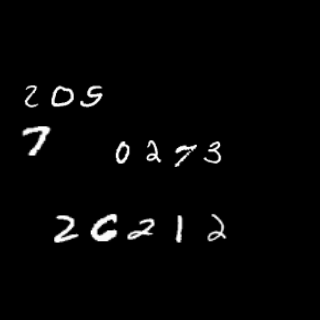 205
7
0273
26212